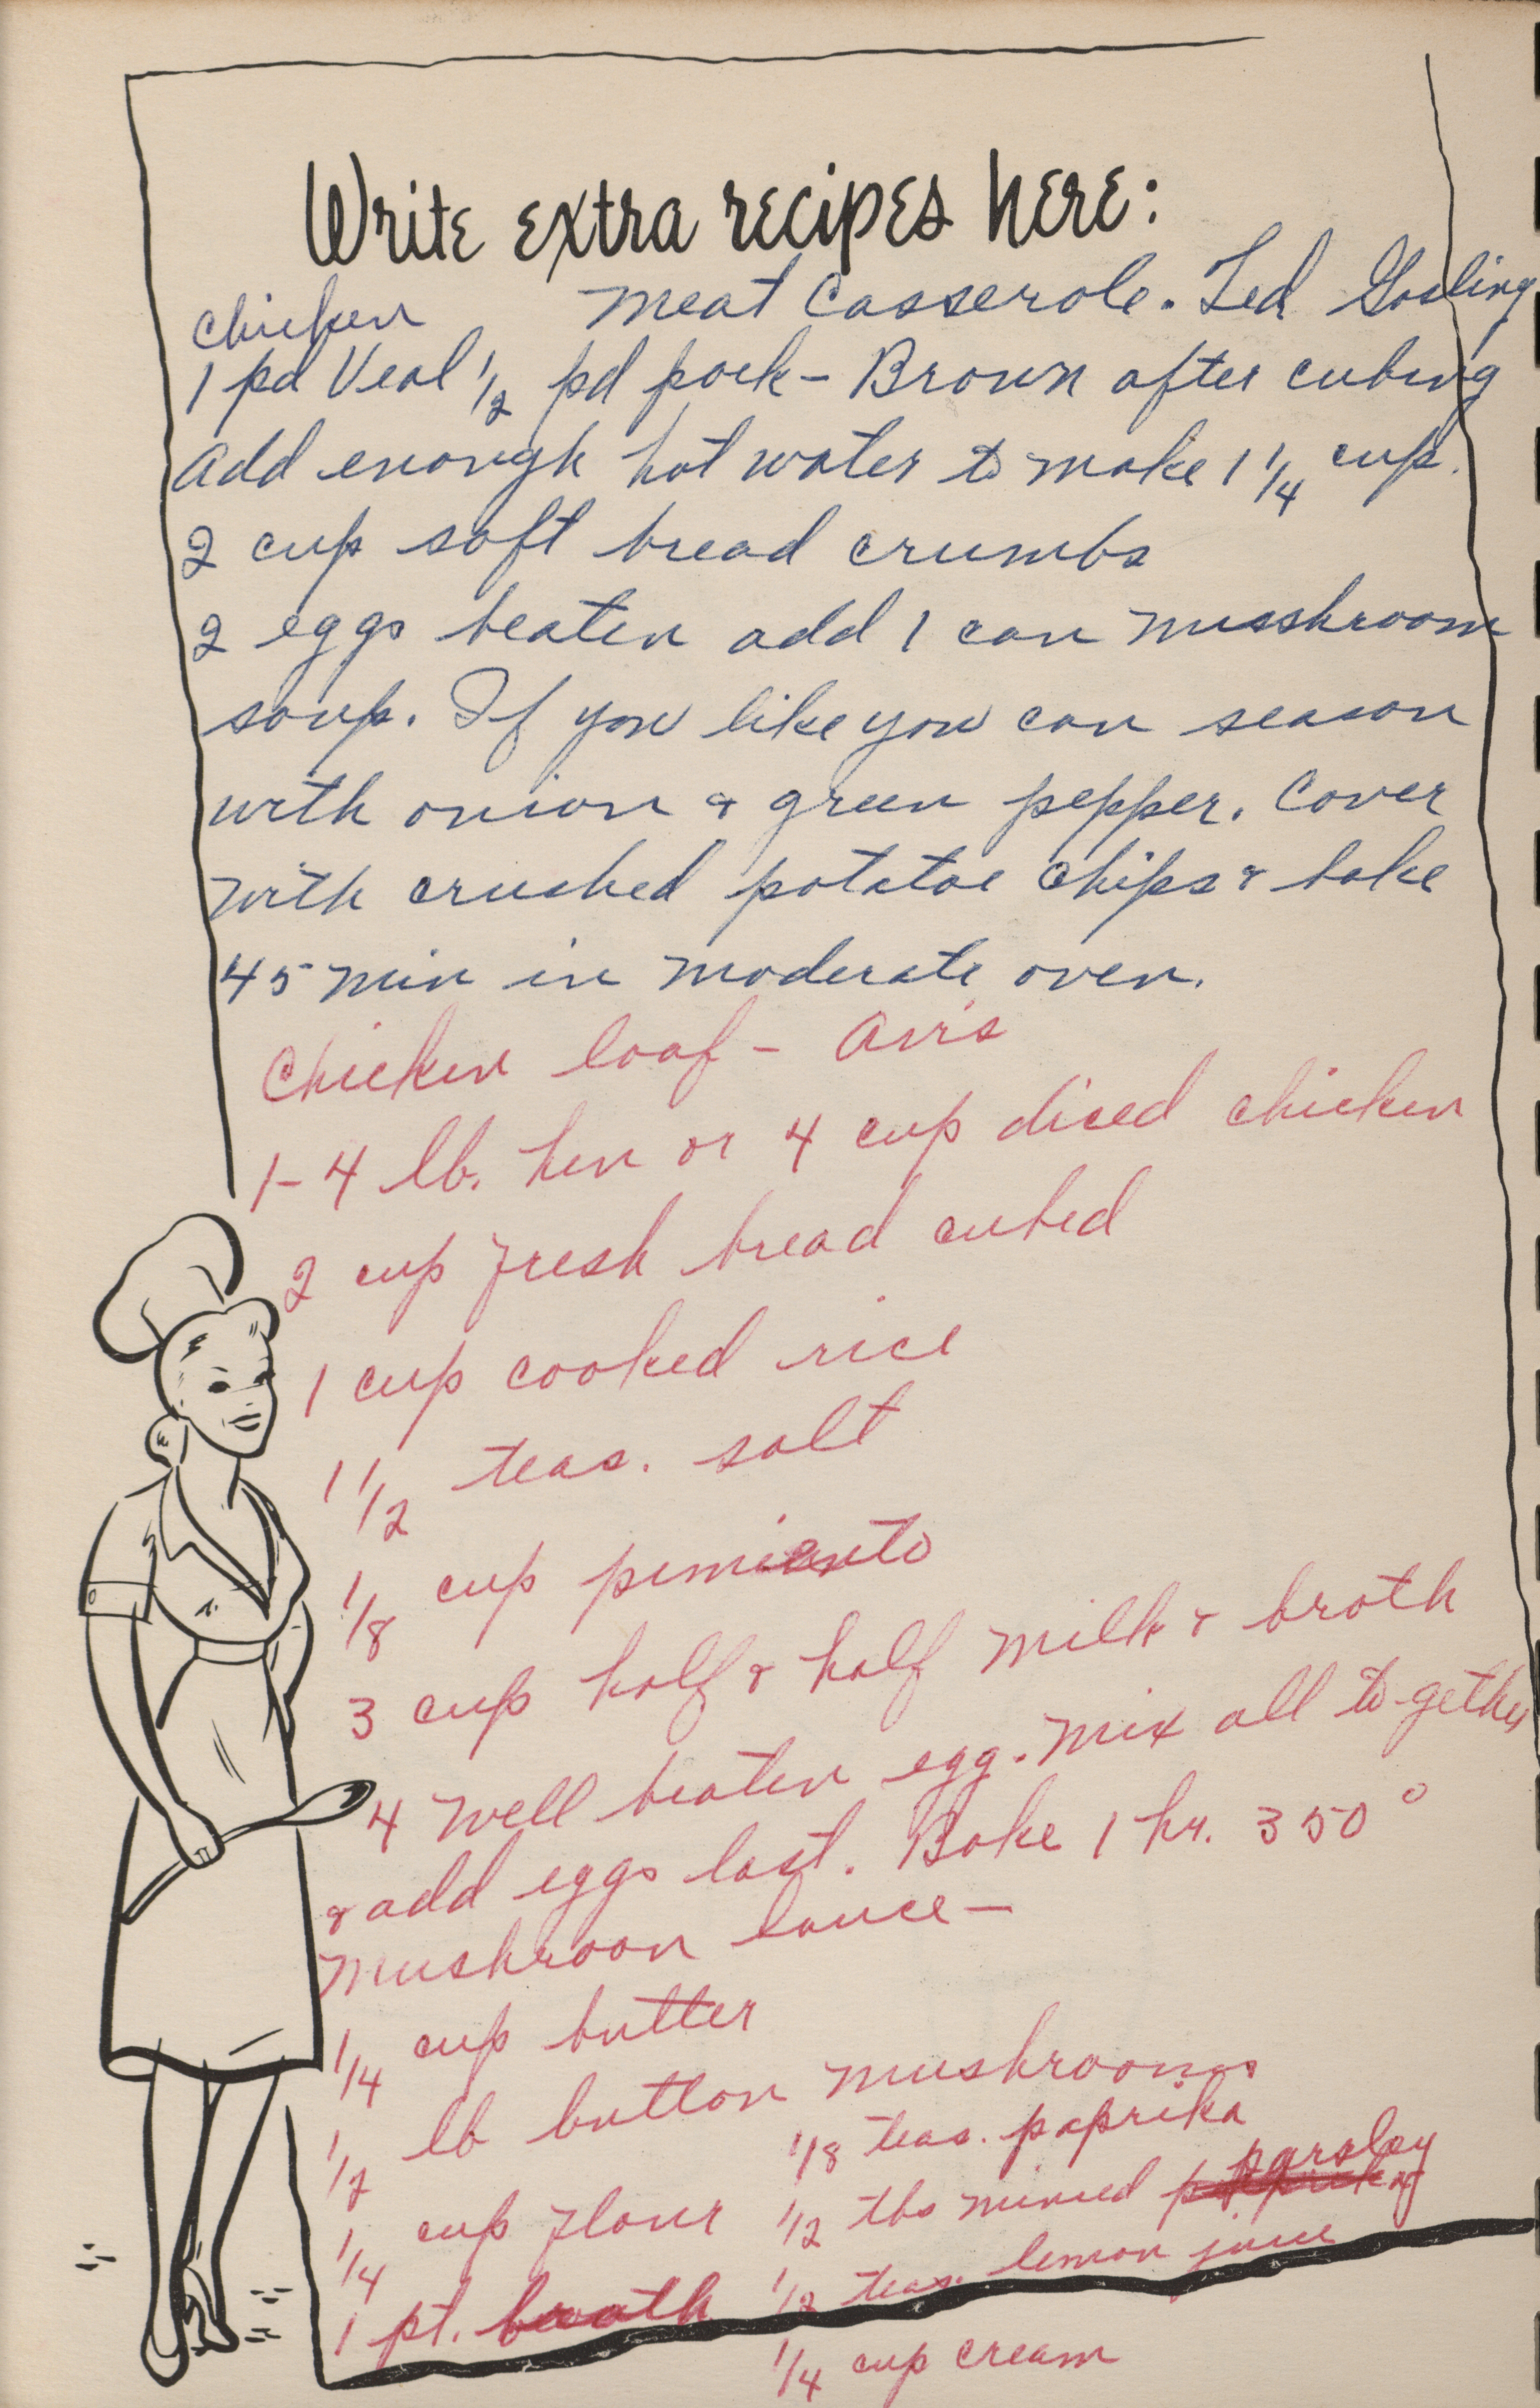 Write extra recipes here:
Meat Casserole. Ted Gosling
chicken
1 pd Veal 1/2 pd pork - Brown after cubing
add enough hot water to make 1 1/4 cup.
2 cup soft bread crumbs
2 eggs beaten add 1 can musshroom
soup. If you like you can season
with onion & green pepper. Cover
with crushed potatoe chips & bake
45 min in moderate oven.
Chicken loaf - Avis
1 - 4 lb. hen or 4 cup diced chicken
2 cup fresh bread cubed
1 cup cooked rice
1 1/2 teas. salt
1/8 cup pimiento
3 cup half & half milk & broth
4 well beaten egg. Mix all to-gether
& add eggs last. Bake 1 hr. 350°
Mushroon Sauce -
1/4 cup butter
1/2 lb button mushrooms
1/4 cup flour
1 pt. broth
1/8 teas. paprika
1/2 tbs minced parsley
1/2 teas. lemon juice
1/4 cup cream